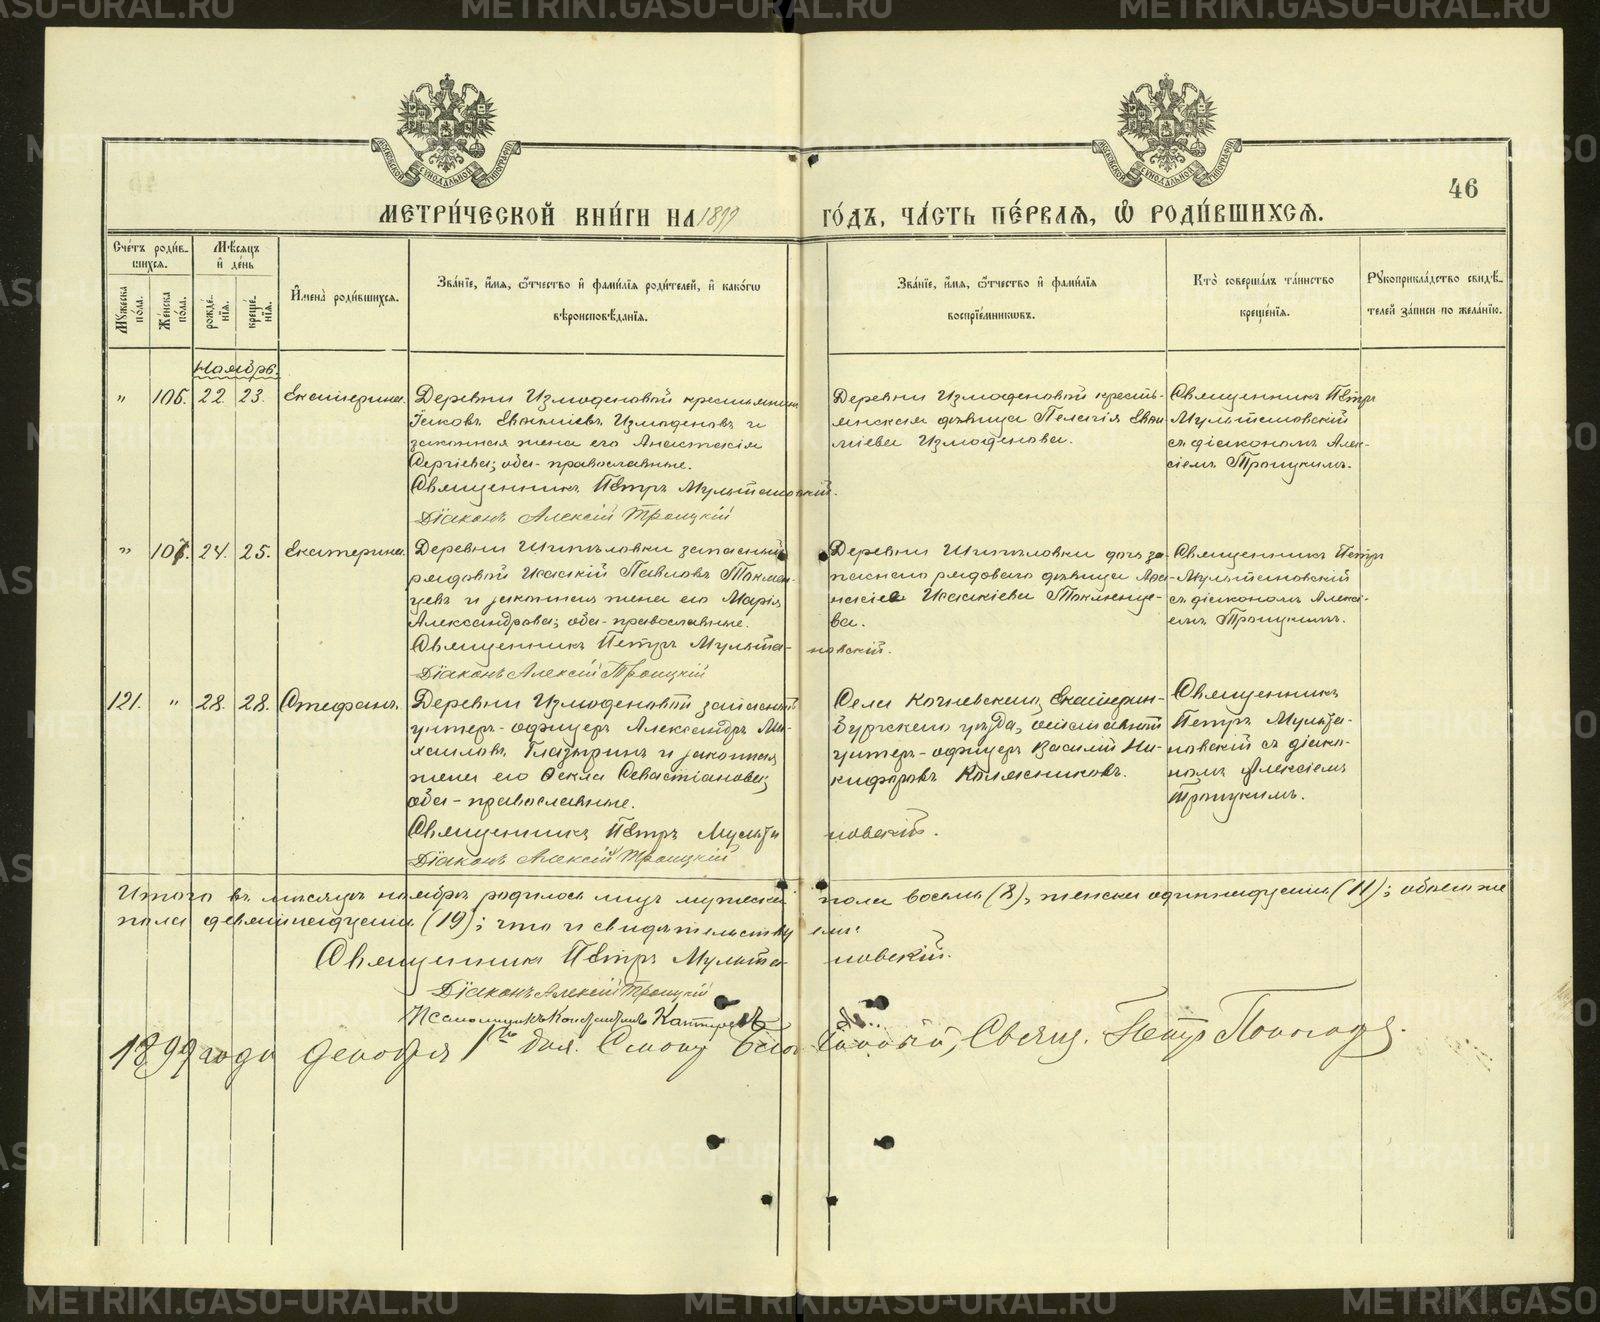 METRIKI.GASO-URAL.RU
46
МЕТРИ́ЧЕСКОЙ КНИ́ГИ НА 1899 ГО́ДЪ, ЧА́СТЬ ПЕ́РВАЯ, Ѽ РОДИ́ВШИХСЯ.
Сче́тъ роди́вшихся.
Мꙋжеска по́ла.
Же́нска по́ла.
Мѣсяцъ и҆ де́нь
рожде́нїѧ.
креще́нїѧ.
И҆мена̀ роди́вшихсѧ.
Зва́нїе, и҆́мѧ, ѻ҆́тчество и҆ фами́лїѧ роди́телей, и҆ како́гѡ
вѣроисповѣ́данїѧ.
Зва́нїе, и҆́мѧ, ѻ҆́тчество и҆ фами́лїѧ
воспрїе́мниковъ.
Кто̀ соверша́лъ та́инство
креще́нїѧ.
Рꙋкоприкла́дство свидѣ́-
телей за́писи по жела́нїю.
Ноябрь.
" 106. 22. 23. Екатерина.
Деревни Измоденовой крестьянинъ
Іаковъ Евфиміевъ Измоденовъ и
законная жена его Анастасія
Сергіева; оба православные.
Священникъ Петръ Мультановскій.
Діаконъ Алексій Троицкій
Деревни Измоденовой кресть-
янская дѣвица Пелагія Евфи-
міева Измоденова.
Священникъ Петръ
Мультановскій
съ діакономъ Алек-
сіемъ Троицкимъ.
" 107. 24. 25. Екатерина.
Деревни Шипѣловки запасный
рядовой Исакій Павловъ Токмян-
цевъ и законная жена его Марія
Александрова; оба православные.
Священникъ Петръ Мультановскій.
Діаконъ Алексій Троицкій
Деревни Шипѣловки дочь за-
паснаго рядоваго дѣвица
Исакіева
ва.
Священникъ Петръ
Мультановскій
съ діакономъ Алексі-
емъ Троицкимъ.
121. " 28. 28. Стефанъ.
Деревни Измоденовой запасный
унтеръ-офицеръ Александръ Ми-
хаиловъ Глазыринъ и законная
жена его Ѳекла Севастіанова;
оба православные.
Священникъ Петръ Мультановскій.
Діаконъ Алексій Троицкій
Села Кочневскаго, Екатерин-
бургскаго уѣзда, отставной
унтеръ-офицеръ Василій Ни-
кифоровъ Колясниковъ.
Священникъ
Петръ Мульта-
новскій съ діако-
номъ Алексіемъ
Троицкимъ.
Итого въ мѣсяцѣ ноябрѣ родилось лицъ мужеска пола восемь (8), женска одиннадцать (11); обоего же
пола девятнадцать (19); что и свидѣтельствуемъ:
Священникъ Петръ Мультановскій.
Діаконъ Алексій Троицкій
Псаломщикъ Константинъ
1899 года декабря 1го дня. Свящ. Петръ